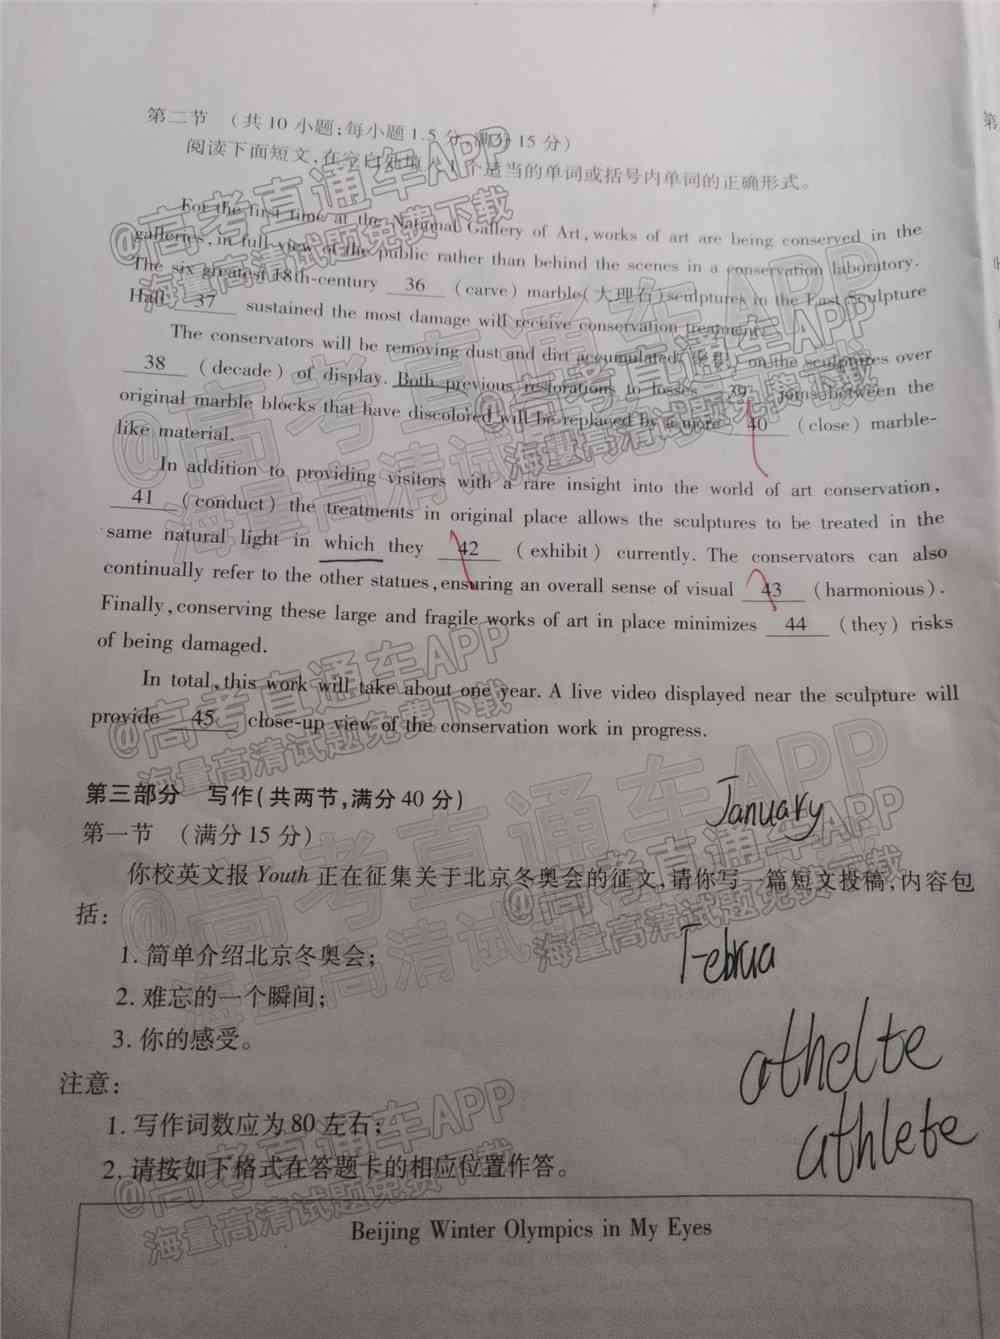 第二节 (共10小题;每小题1.5分,满分15分)
阅读下面短文,在空白处填入1个适当的单词或括号内单词的正确形式。
For the first time at the National Gallery of Art, works of art are being conserved in the
galleries, in full view of the public rather than behind the scenes in a conservation laboratory.
The six greatest 18th-century 36 (carve) marble(大理石)sculptures in the East Sculpture
Hall 37 sustained the most damage will receive conservation treatment.
The conservators will be removing dust and dirt accumulated on the sculptures over
38 (decade) of display. Both previous restorations to losses 39 joins between the
original marble blocks that have discolored will be replaced by a more 40 (close) marble-
like material.
In addition to providing visitors with a rare insight into the world of art conservation,
41 (conduct) the treatments in original place allows the sculptures to be treated in the
same natural light in which they 42 (exhibit) currently. The conservators can also
continually refer to the other statues, ensuring an overall sense of visual 43 (harmonious).
Finally, conserving these large and fragile works of art in place minimizes 44 (they) risks
of being damaged.
In total, this work will take about one year. A live video displayed near the sculpture will
provide 45 close-up view of the conservation work in progress.
第三部分 写作(共两节,满分40分)
January
第一节 (满分15分)
你校英文报 Youth 正在征集关于北京冬奥会的征文,请你写一篇短文投稿,内容包
括:
1. 简单介绍北京冬奥会;
Februa
2. 难忘的一个瞬间;
3. 你的感受。
athelte
注意:
1. 写作词数应为80左右;
athlete
2. 请按如下格式在答题卡的相应位置作答。
Beijing Winter Olympics in My Eyes
@高考直通车APP
海量高清试题免费下载
@高考直通车APP
海量高清试题免费下载
@高考直通车APP
海量高清试题免费下载
@高考直通车APP
海量高清试题免费下载
@高考直通车APP
海量高清试题免费下载